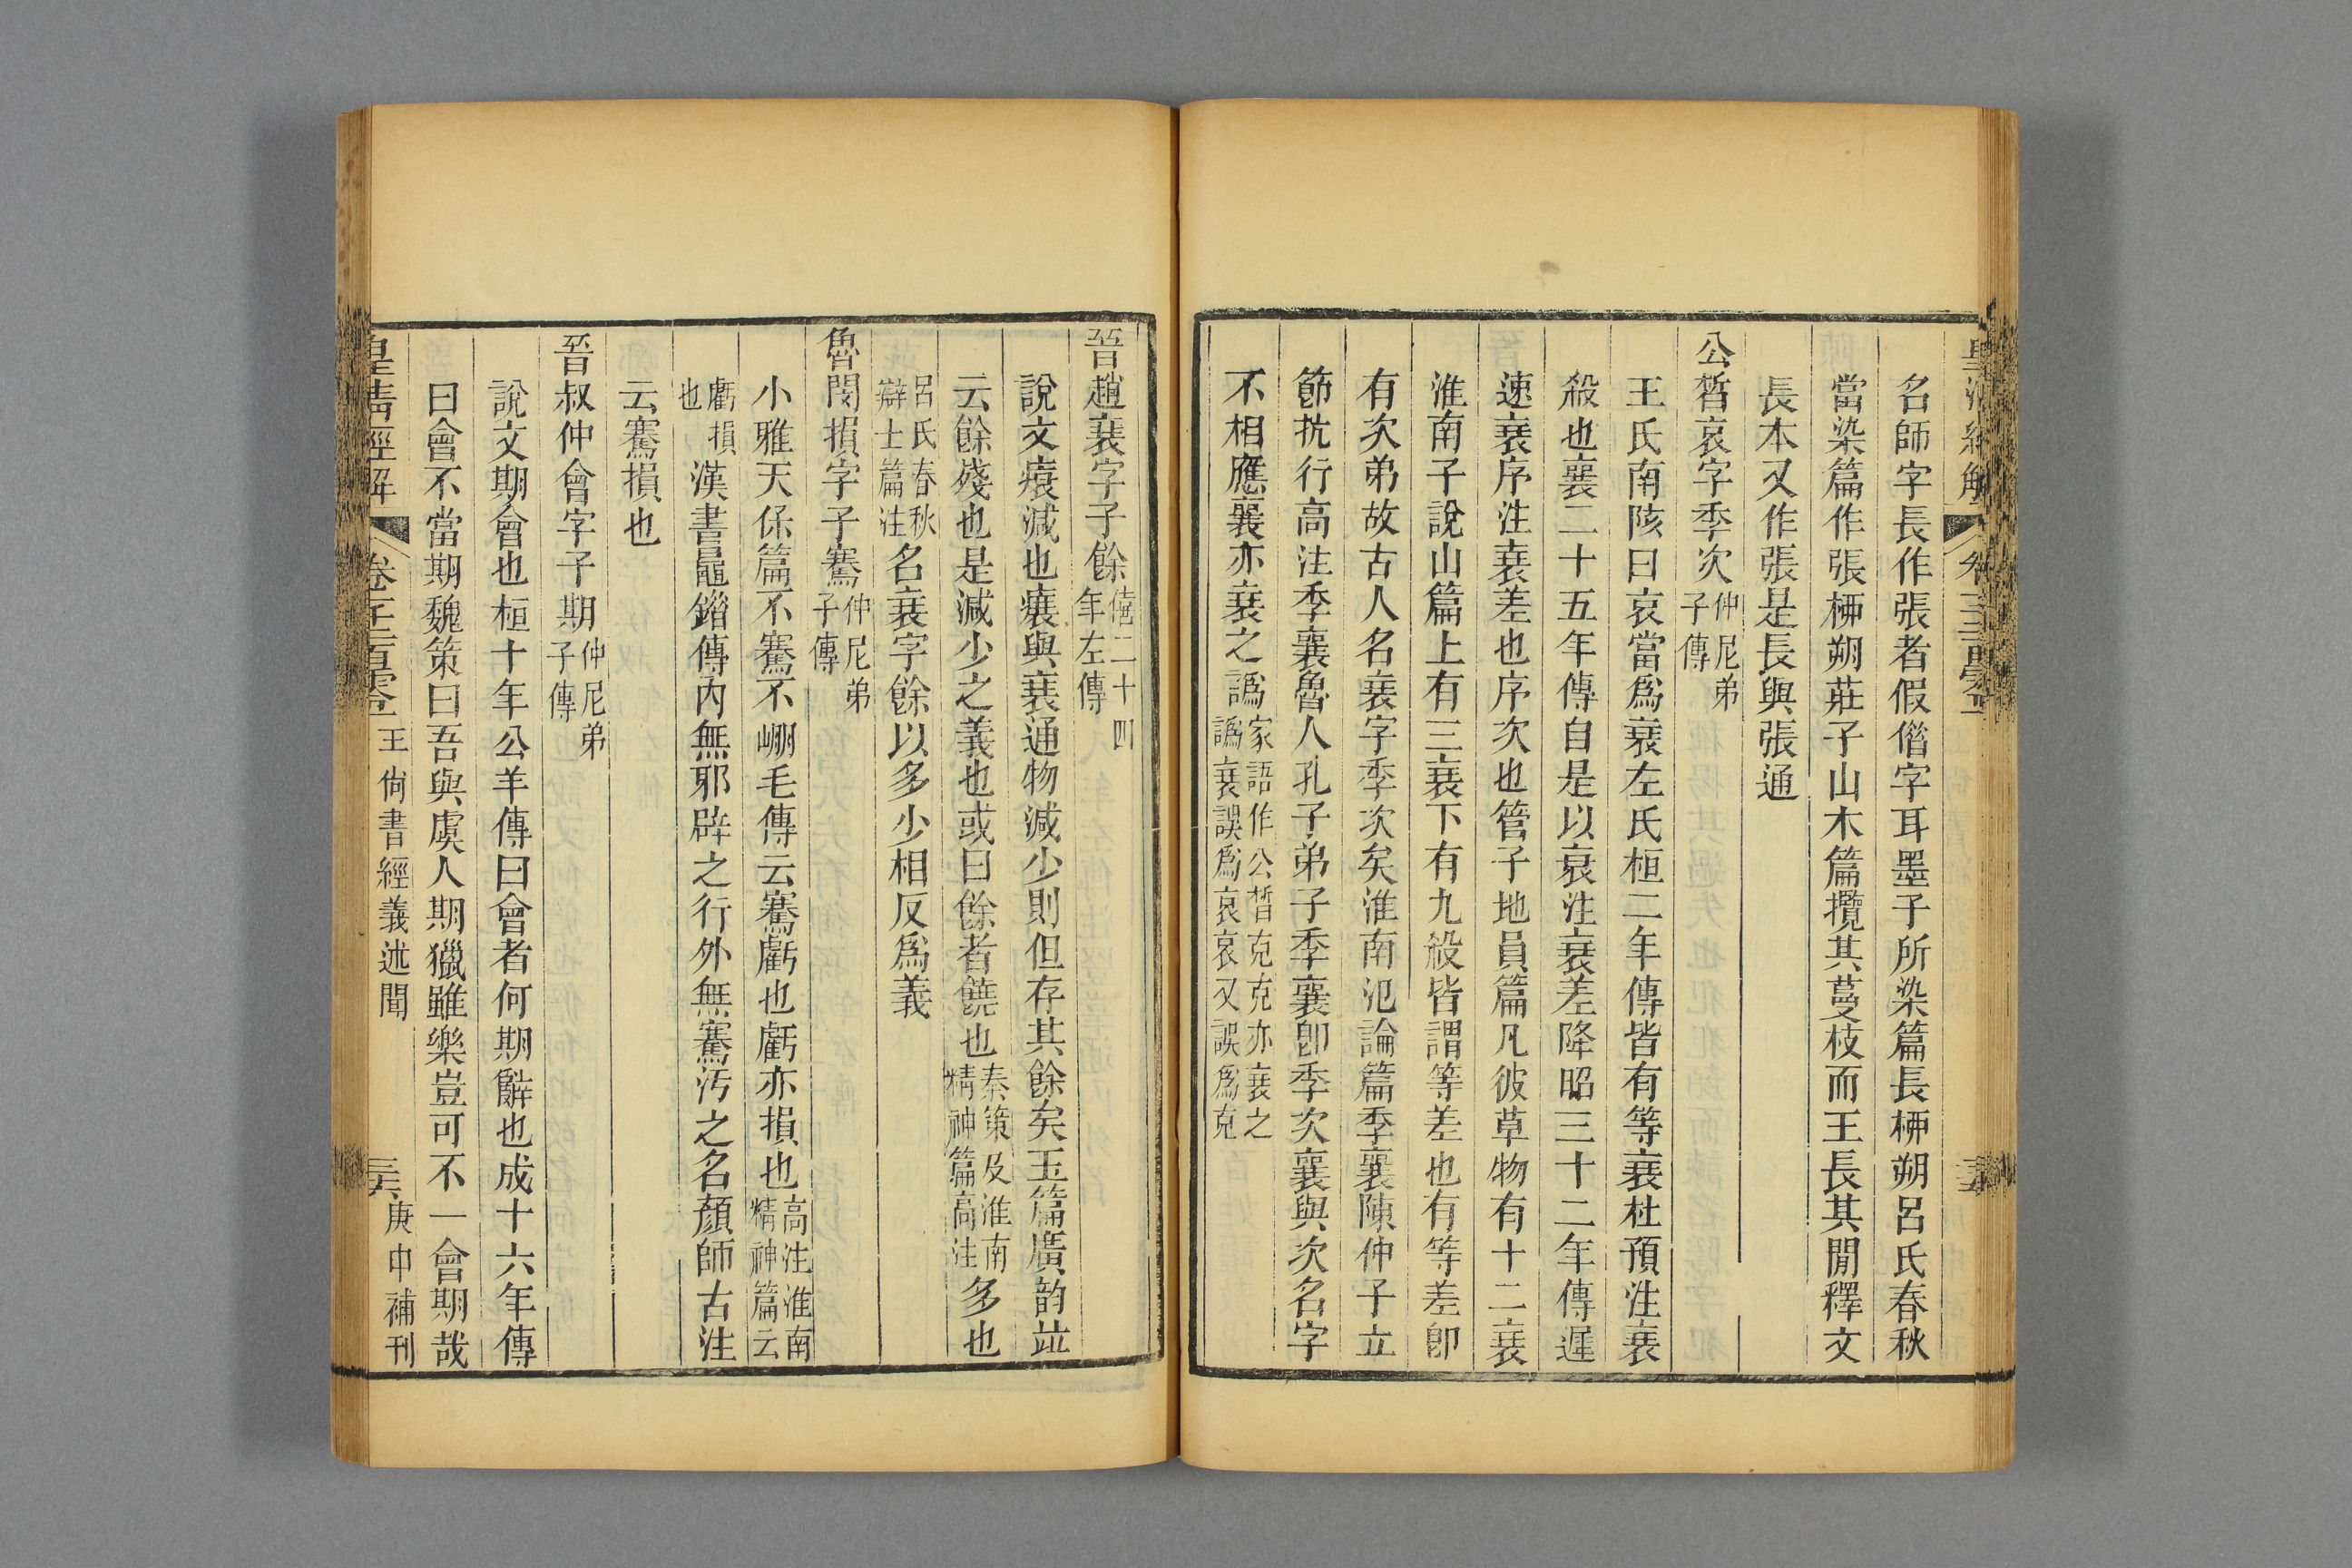 名師字長作張者假借字耳墨子所染篇長桺朔呂氏春秋
當染篇作張桺朔莊子山木篇攬其蔓枝而王長其閒釋文
長本又作張是長與張通
公晳哀字季次仲尼弟子傳
王氏南陔曰哀當爲衰左氏桓二年傳皆有等衰杜預注衰
殺也襄二十五年傳自是以衰注衰差降昭三十二年傳遲
速衰序注衰差也序次也管子地員篇凡彼草物有十二衰
淮南子說山篇上有三衰下有九殺皆謂等差也有等差卽
有次弟故古人名衰字季次矣淮南氾論篇季襄陳仲子立
節抗行高注季襄魯人孔子弟子季襄卽季次襄與次名字
不相應襄亦衰之譌家語作公晳克克亦衰之譌衰誤爲哀哀又誤爲克
晉趙衰字子餘僖二十四年左傳
說文㾽減也㾽與衰通物減少則但存其餘矣玉篇廣韵竝
云餘殘也是減少之義也或曰餘者饒也秦策及淮南精神篇高注多也
呂氏春秋辯士篇注名衰字餘以多少相反爲義
魯閔損字子騫仲尼弟子傳
小雅天保篇不騫不崩毛傳云騫虧也虧亦損也高注淮南精神篇云
虧損也漢書鼂錯傳內無邪辟之行外無騫汚之名顏師古注
云騫損也
晉叔仲會字子期仲尼弟子傳
說文期會也桓十年公羊傳曰會者何期辭也成十六年傳
曰會不當期魏策曰吾與虞人期獵雖樂豈可不一會期哉
皇清經解 卷二百壹 王尙書經義述聞 三六 庚申補刊